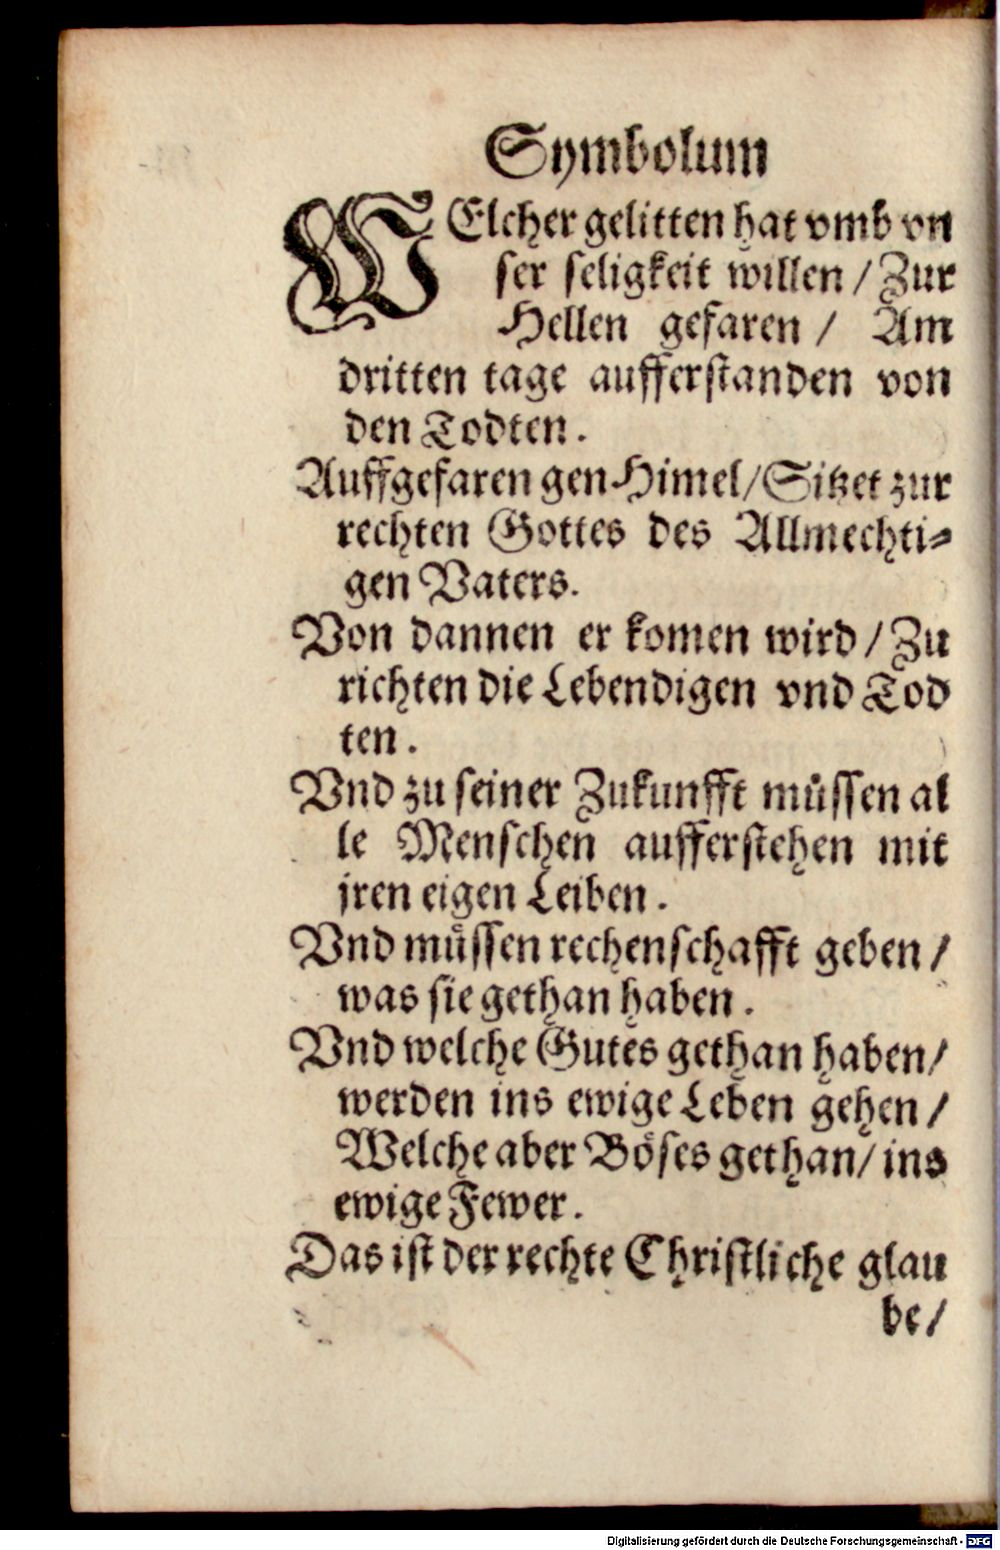 Symbolum
WElcher gelitten hat vmb vn
ser seligkeit willen / Zur
Hellen gefaren / Am
dritten tage aufferstanden von
den Todten.
Auffgefaren gen Himel / Sitzet zur
rechten Gottes des Allmechti-
gen Vaters.
Von dannen er komen wird / Zu
richten die Lebendigen vnd Tod
ten.
Vnd zu seiner Zukunfft müssen al
le Menschen aufferstehen mit
jren eigen Leiben.
Vnd müssen rechenschafft geben /
was sie gethan haben.
Vnd welche Gutes gethan haben /
werden ins ewige Leben gehen /
Welche aber Böses gethan / ins
ewige Fewer.
Das ist der rechte Christliche glau
be /
Digitalisierung gefördert durch die Deutsche Forschungsgemeinschaft - DFG